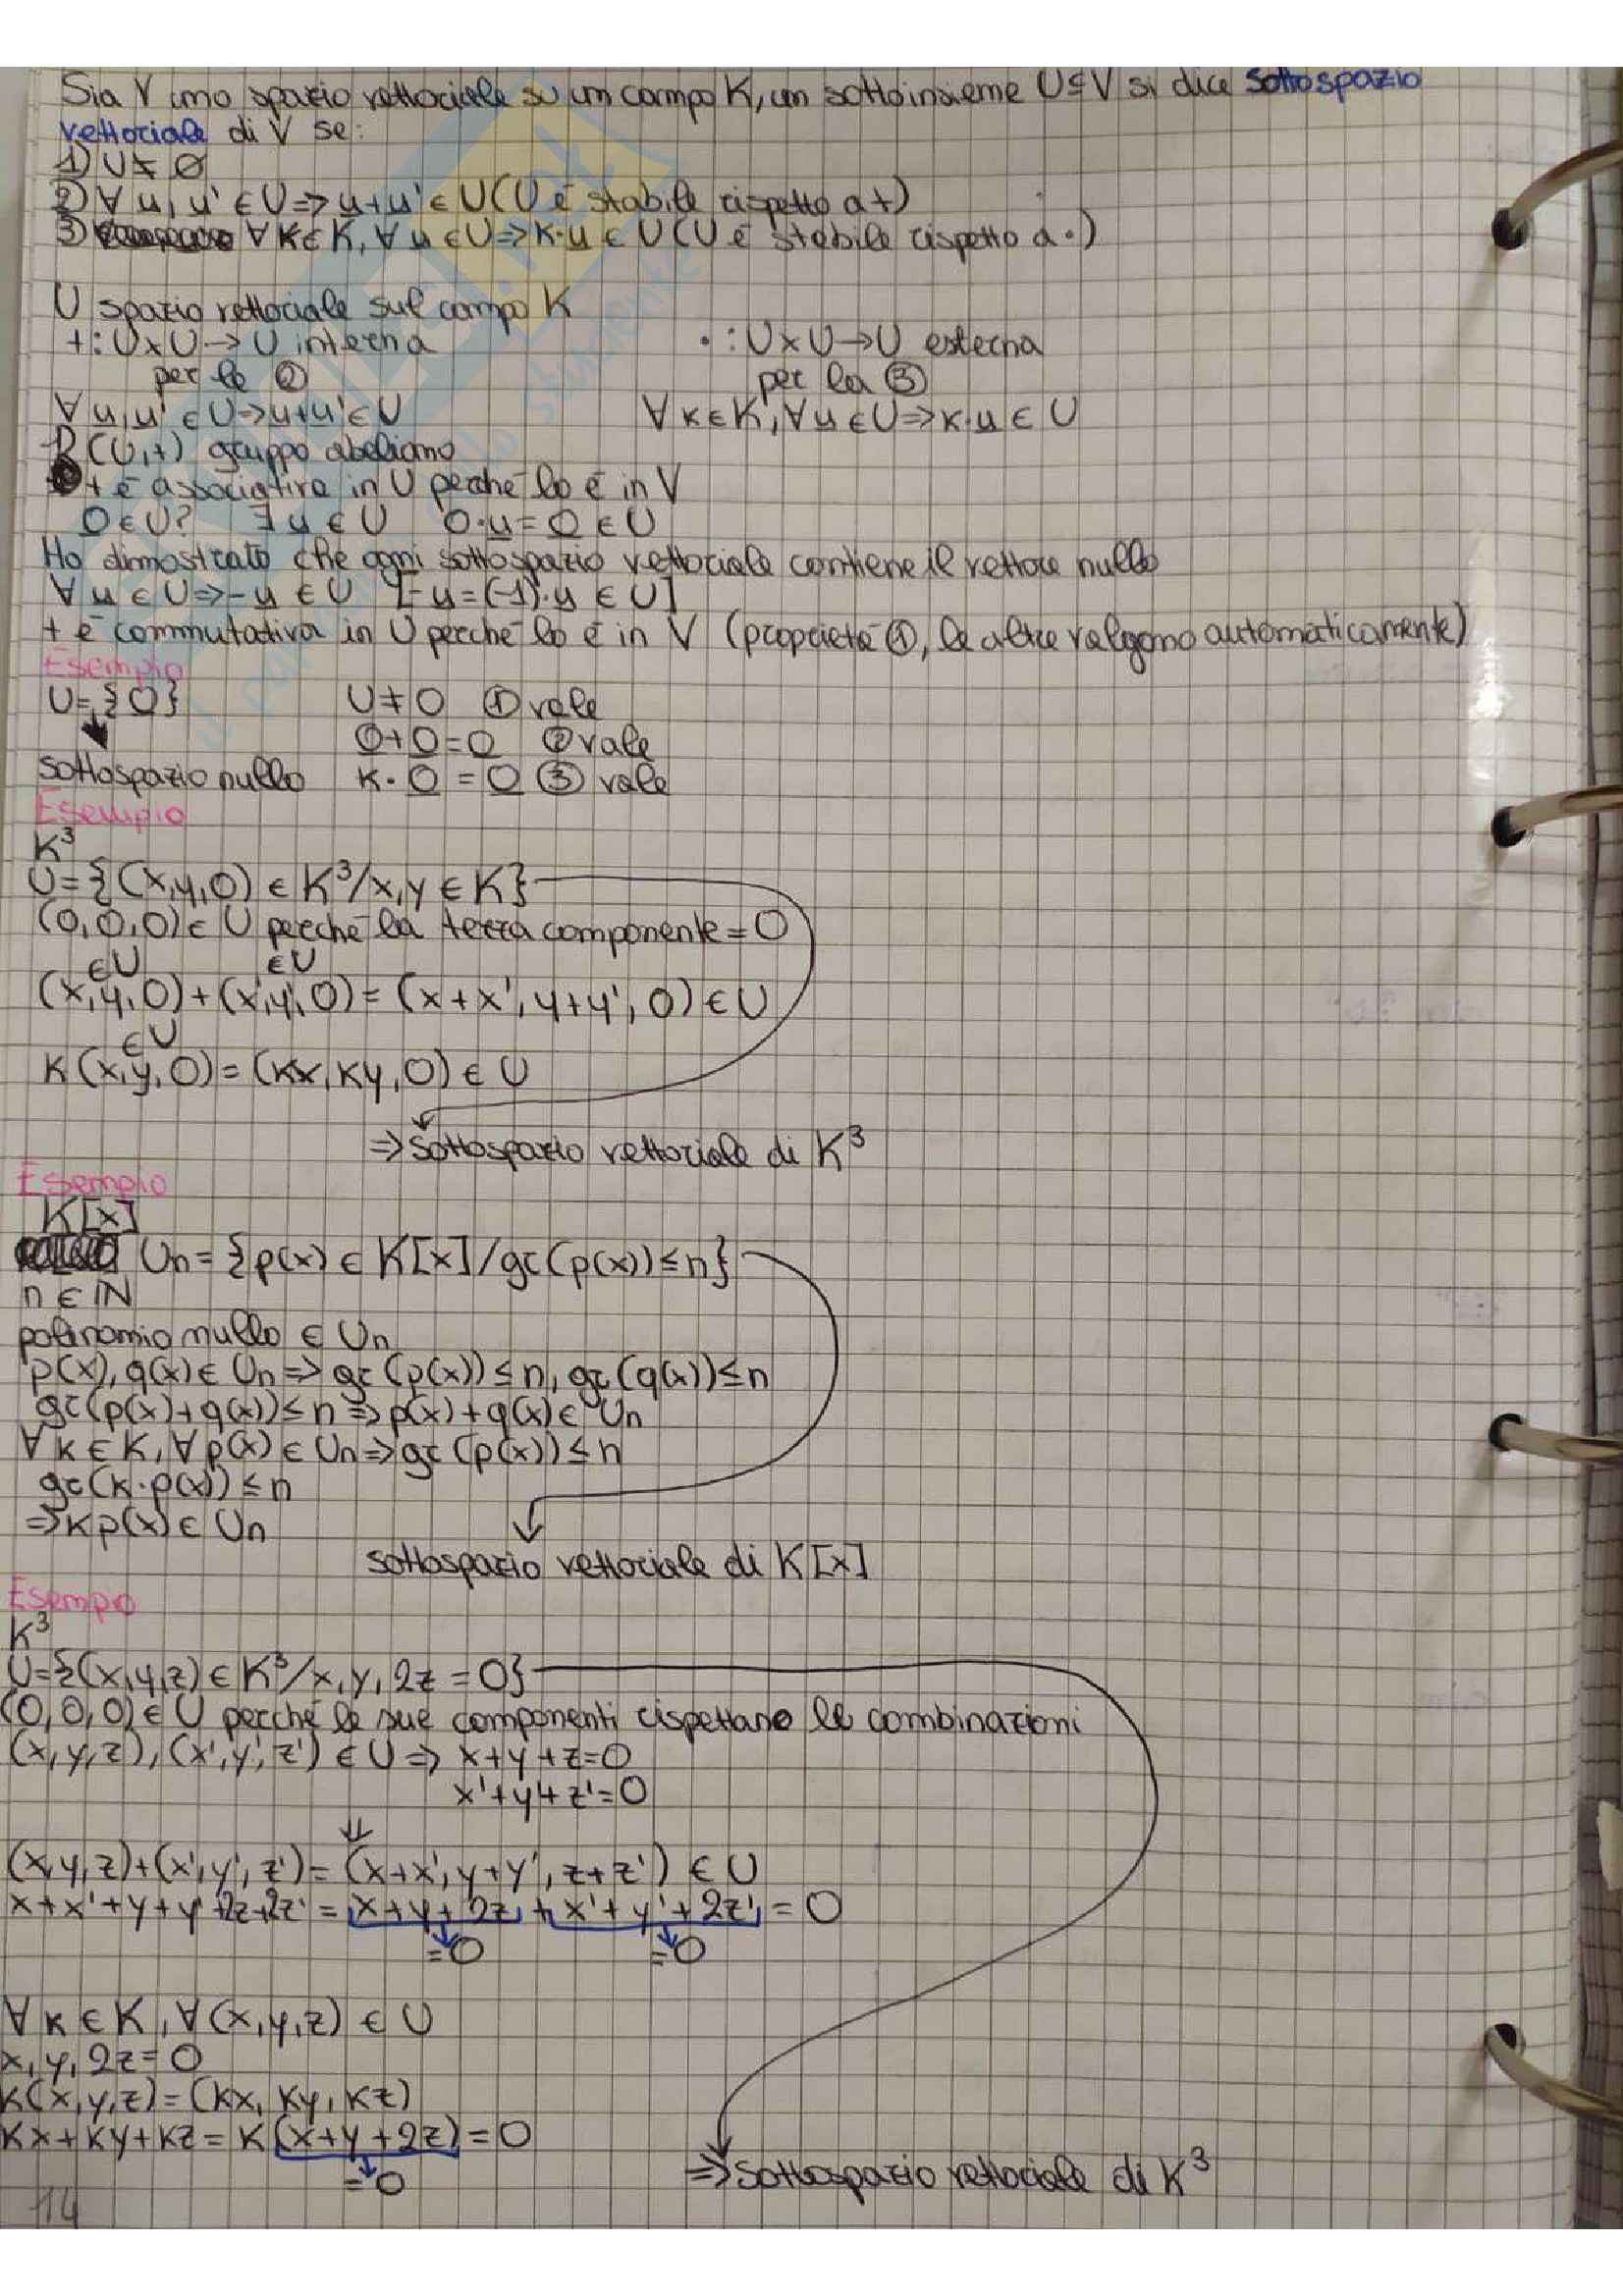 Sia V uno spazio vettoriale su un campo K, un sottoinsieme U⊆V si dice sottospazio
vettoriale di V se:
1) U≠∅
2) ∀ u, u' ∈ U => u+u' ∈ U (U è stabile rispetto a +)
3) ∀ k∈K, ∀ u ∈ U => k·u ∈ U (U è stabile rispetto a ·)
U spazio vettoriale sul campo K
+: U×U → U interna · : U×U → U esterna
per la ② per la ③
∀ u, u' ∈ U => u+u' ∈ U ∀ k∈K, ∀ u ∈ U => k·u ∈ U
(U,+) gruppo abeliano
+ è associativa in U perché lo è in V
0 ∈ U? ∃ u ∈ U 0·u = 0 ∈ U
Ho dimostrato che ogni sottospazio vettoriale contiene il vettore nullo
∀ u ∈ U => -u ∈ U [-u = (-1)·u ∈ U]
+ è commutativa in U perché lo è in V (proprietà ①, le altre valgono automaticamente)
Esempio
U = {0} U ≠ 0 ① vale
0+0=0 ② vale
sottospazio nullo k·0 = 0 ③ vale
Esempio
K³
U = {(x,y,0) ∈ K³/x,y ∈ K}
(0,0,0) ∈ U perché la terza componente = 0
∈U ∈U
(x,y,0)+(x',y',0) = (x+x', y+y', 0) ∈ U
∈U
K(x,y,0) = (kx, ky, 0) ∈ U
=> sottospazio vettoriale di K³
Esempio
K[x]
Un = {p(x) ∈ K[x]/gr(p(x)) ≤ n}
n ∈ ℕ
polinomio nullo ∈ Un
p(x), q(x) ∈ Un => gr(p(x)) ≤ n, gr(q(x)) ≤ n
gr(p(x)+q(x)) ≤ n => p(x)+q(x) ∈ Un
∀ k ∈ K, ∀ p(x) ∈ Un => gr(p(x)) ≤ n
gr(k·p(x)) ≤ n
=> kp(x) ∈ Un
sottospazio vettoriale di K[x]
Esempio
K³
U = {(x,y,z) ∈ K³/x, y, 2z = 0}
(0,0,0) ∈ U perché le sue componenti rispettano le combinazioni
(x,y,z), (x',y',z') ∈ U => x+y+z=0
x'+y'+z'=0
(x,y,z)+(x',y',z') = (x+x', y+y', z+z') ∈ U
x+x'+y+y'+2z+2z' = x+y+2z + x'+y'+2z' = 0
=0 =0
∀ k ∈ K, ∀ (x,y,z) ∈ U
x, y, 2z = 0
k(x,y,z) = (kx, ky, kz)
kx+ky+kz = k(x+y+2z) = 0
=0
=> sottospazio vettoriale di K³
14